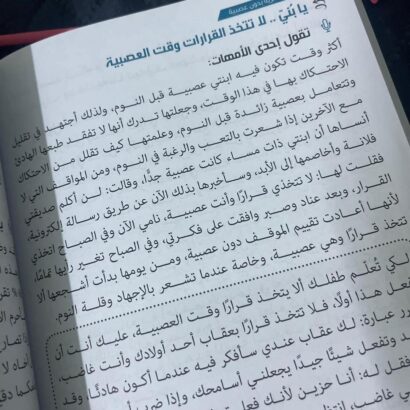 بدون عصبية
يا بُنيّ .. لا تتخذ القرارات وقت العصبية
تقول إحدى الأمهات:
أكثر وقت تكون فيه ابنتي عصبية قبل النوم، ولذلك أجتهد في تقليل
الاحتكاك بها في هذا الوقت، وجعلتها تدرك أنها لا تفقد طبعها الهادئ
وتتعامل بعصبية زائدة قبل النوم، وعلمتها كيف تقلل من الاحتكاك
مع الآخرين إذا شعرت بالتعب والرغبة في النوم، ومن المواقف التي لا
أنساها أن ابنتي ذات مساء كانت عصبية جدًّا، وقالت: لن أكلم صديقتي
فلانة وأخاصمها إلى الأبد، وسأخبرها بذلك الآن عن طريق رسالة إلكترونية،
فقلت لها: لا تتخذي قرارًا وأنت عصبية، نامي الآن وفي الصباح اتخذي
القرار، وبعد عناد وصبر وافقت على فكرتي، وفي الصباح تغير رأيها تمامًا،
لأنها أعادت تقييم الموقف دون عصبية، ومن يومها بدأت أشجعها ألا
تتخذ قرارًا وهي عصبية، وخاصة عندما تشعر بالإجهاد وقلة النوم.
لكي تُعلّم طفلك ألا يتخذ قرارًا وقت العصبية، عليك أنت أن
تفعل هذا أولًا، فلا تتخذ قرارًا بعقاب أحد أولادك وأنت غاضب،
عبارة: لك عقاب عندي سأفكر فيه عندما أكون هادئًا، وقد
وتفعل شيئًا جيدًا يجعلني أسامحك، وإذا
فقل له: أنا حزين لأنك